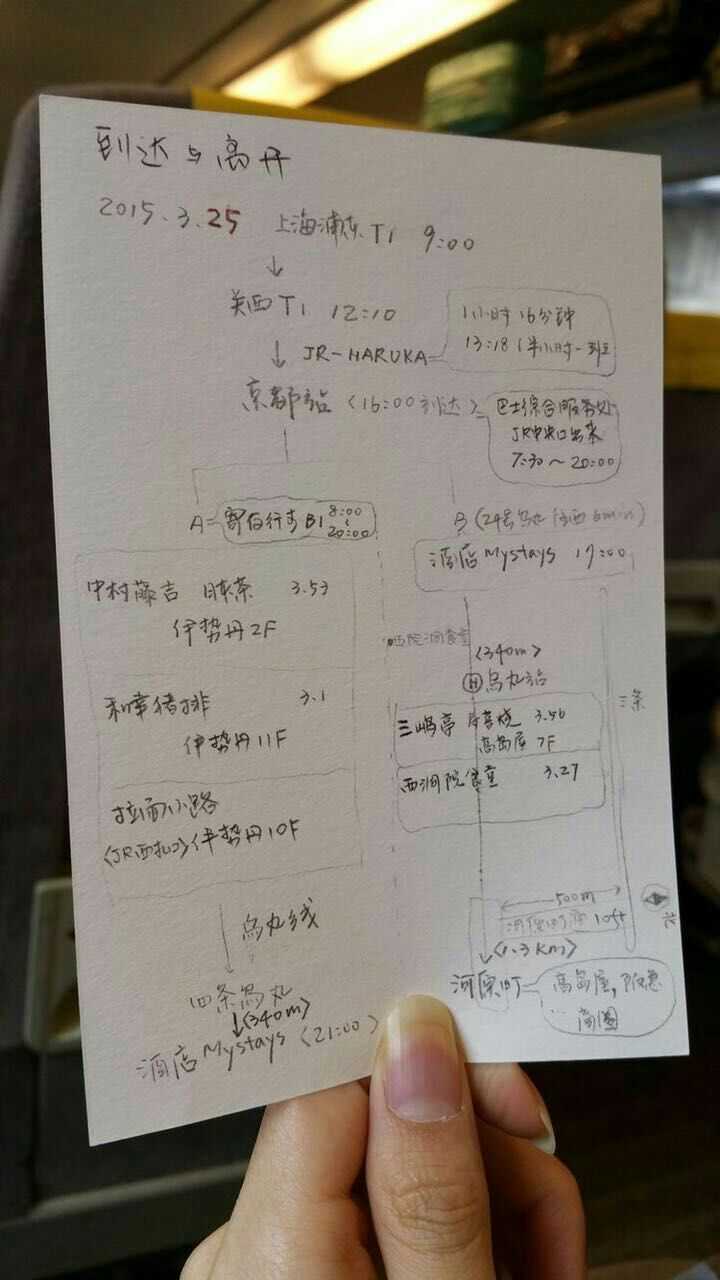 到达与离开
2015.3.25 上海浦东T1 9:00
↓
关西T1 12:10
↓ JR-HARUKA
1小时16分钟
13:18(半小时一班
京都站(16:00到达)
巴士综合服务处
JR中央口出来
7:30~20:00
A=寄存行李B1 8:00
20:00
中村藤吉 抹茶 3.53
伊势丹2F
和幸猪排 3.1
伊势丹11F
拉面小路
(JR西 口)伊势丹10F
↓ 乌丸线
四条乌丸
↓(340m)
酒店Mystays (21:00)
B(24号 往西6min)
酒店Mystays 17:00
西洞院食堂
(340m)
H 乌丸站
三嶋亭 寿喜烧 3.56
高岛屋 7F
西洞院食堂 3.27
三条
500m
loft
(1.3km)
北
河原町
高岛屋,
商圈